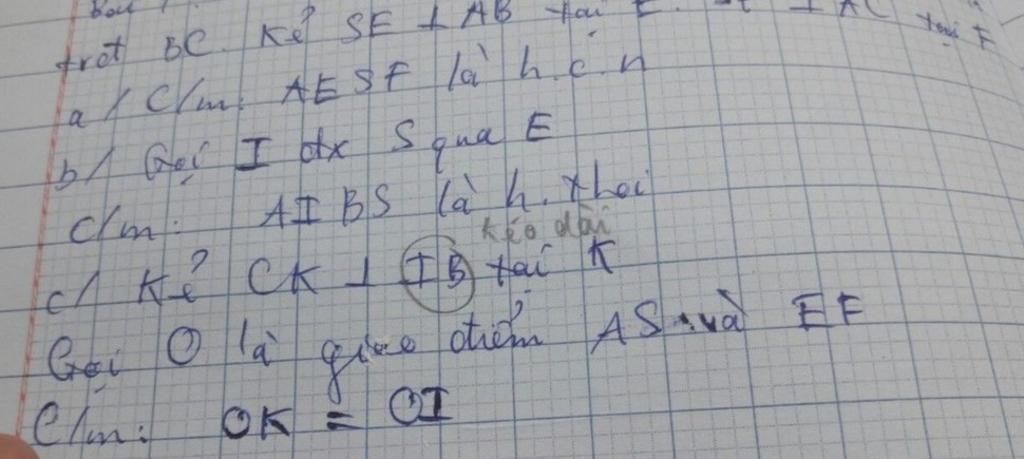 trct BC. Kẻ SE ⊥ AB tại E. ⊥ AC tại F
a/ C/m: AESF là h.c.n
b/ Gọi I đx S qua E
C/m: AIBS là h.thoi
kéo dài
c/ Kẻ CK ⊥ IB tại K
Gọi O là giao điểm AS và EF
C/m: OK = OI